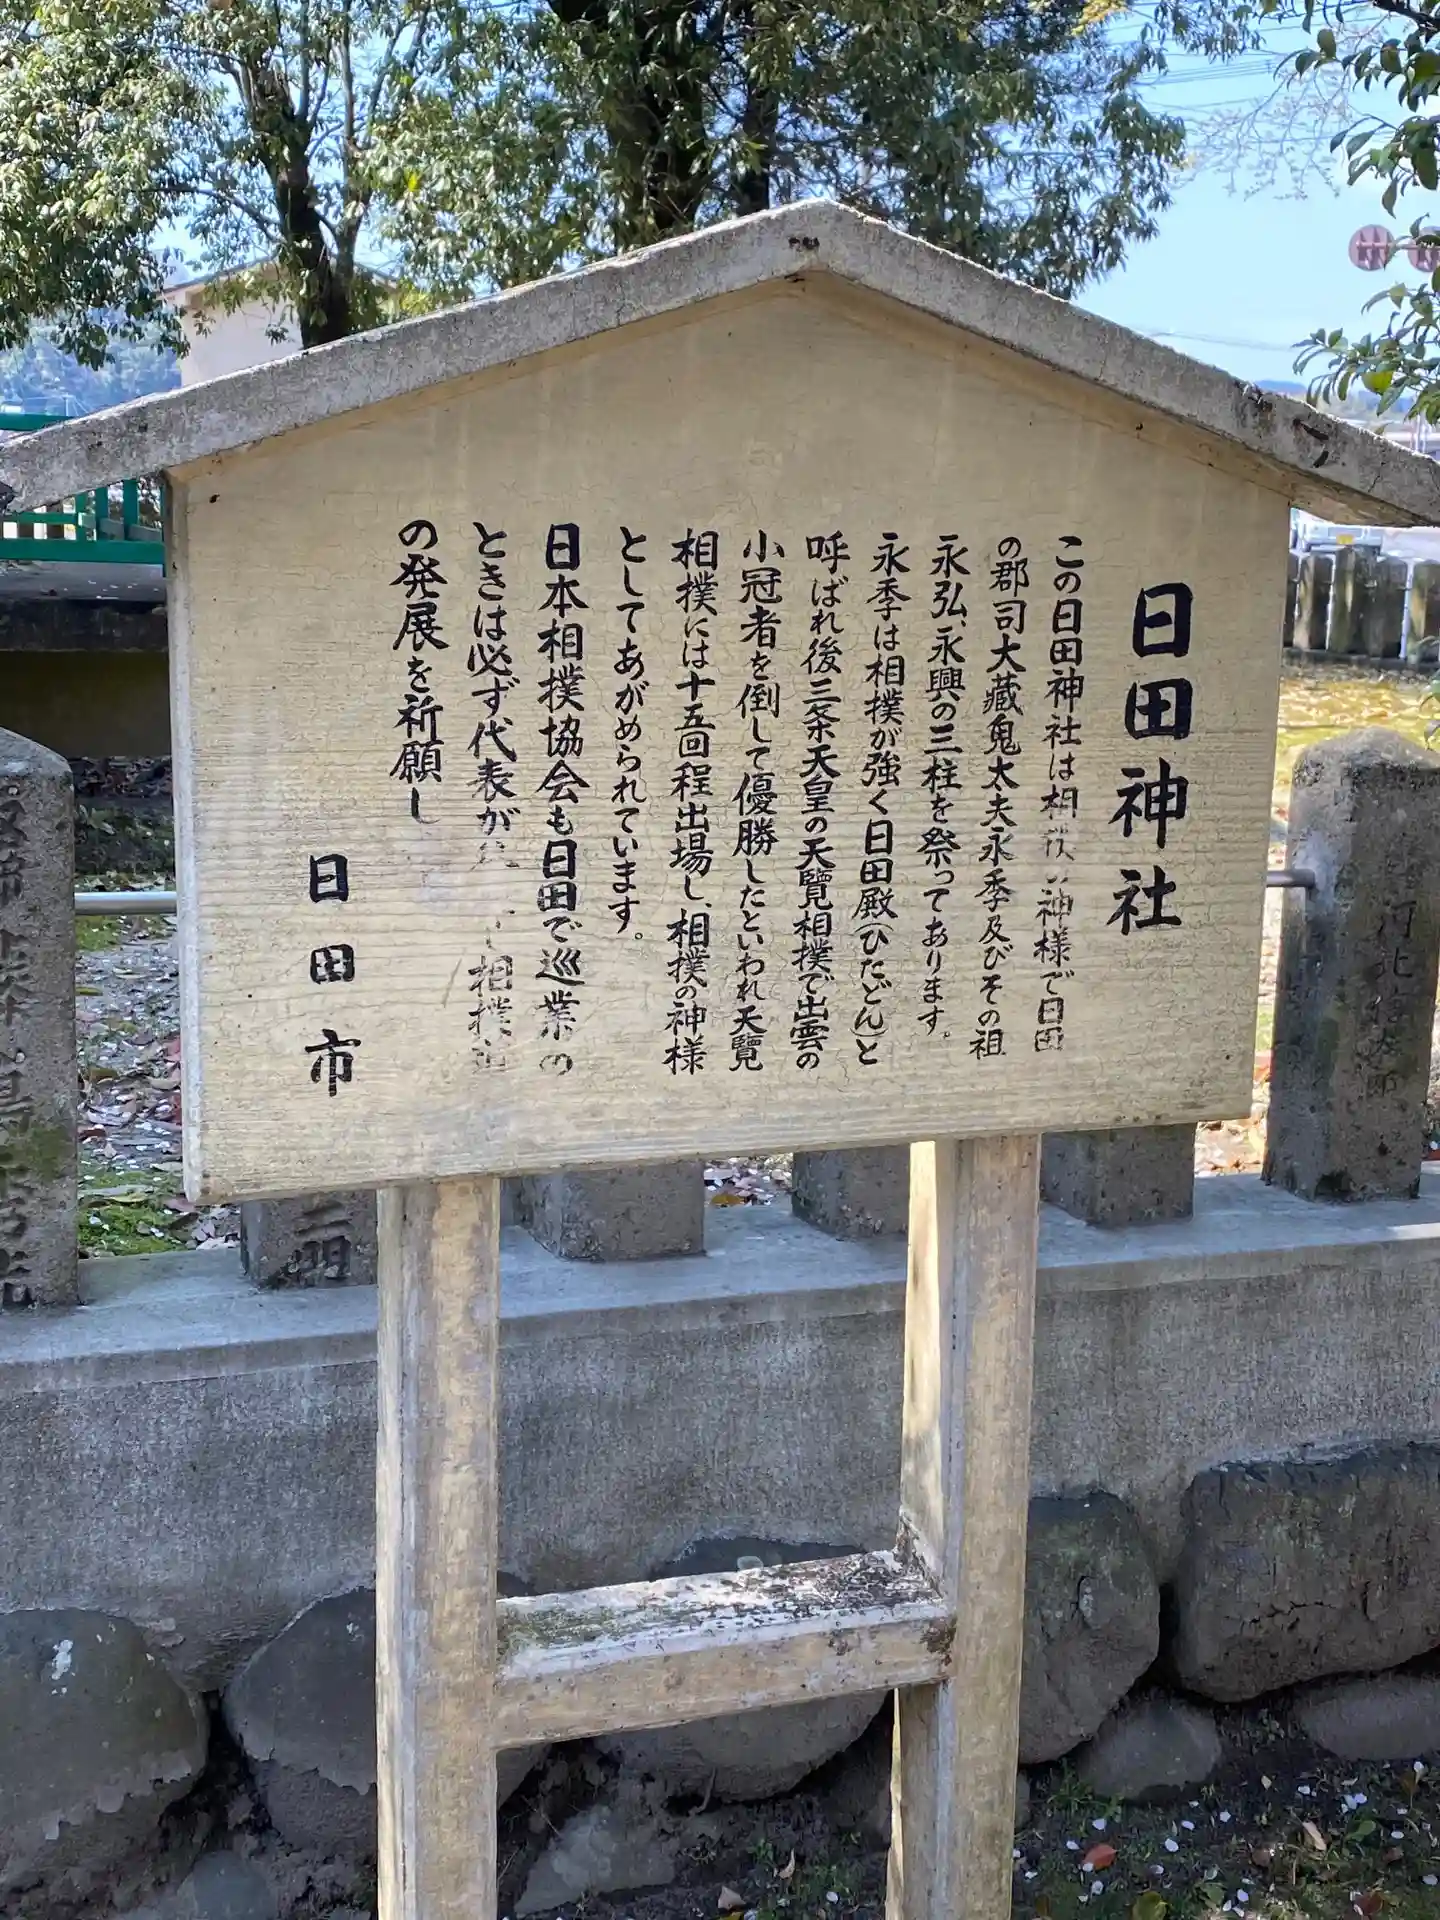 日田神社
この日田神社は相撲の神様で日田
の郡司大藏鬼太夫永季及びその祖
永弘、永興の三柱を祭ってあります。
永季は相撲が強く日田殿(ひたどん)と
呼ばれ後三条天皇の天覽相撲で出雲の
小冠者を倒して優勝したといわれ天覽
相撲には十五回程出場し、相撲の神様
としてあがめられています。
日本相撲協会も日田で巡業の
ときは必ず代表が 相撲道
の発展を祈願し
日田市
河北